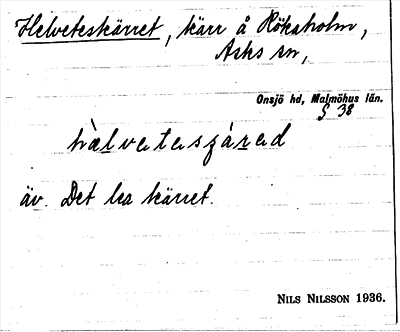 Helveteskärret, kärr å Rökaholm,
Asks sn,
Onsjö hd, Malmöhus län.
§ 38
äv. Det lea kärret.
NILS NILSSON 1936.